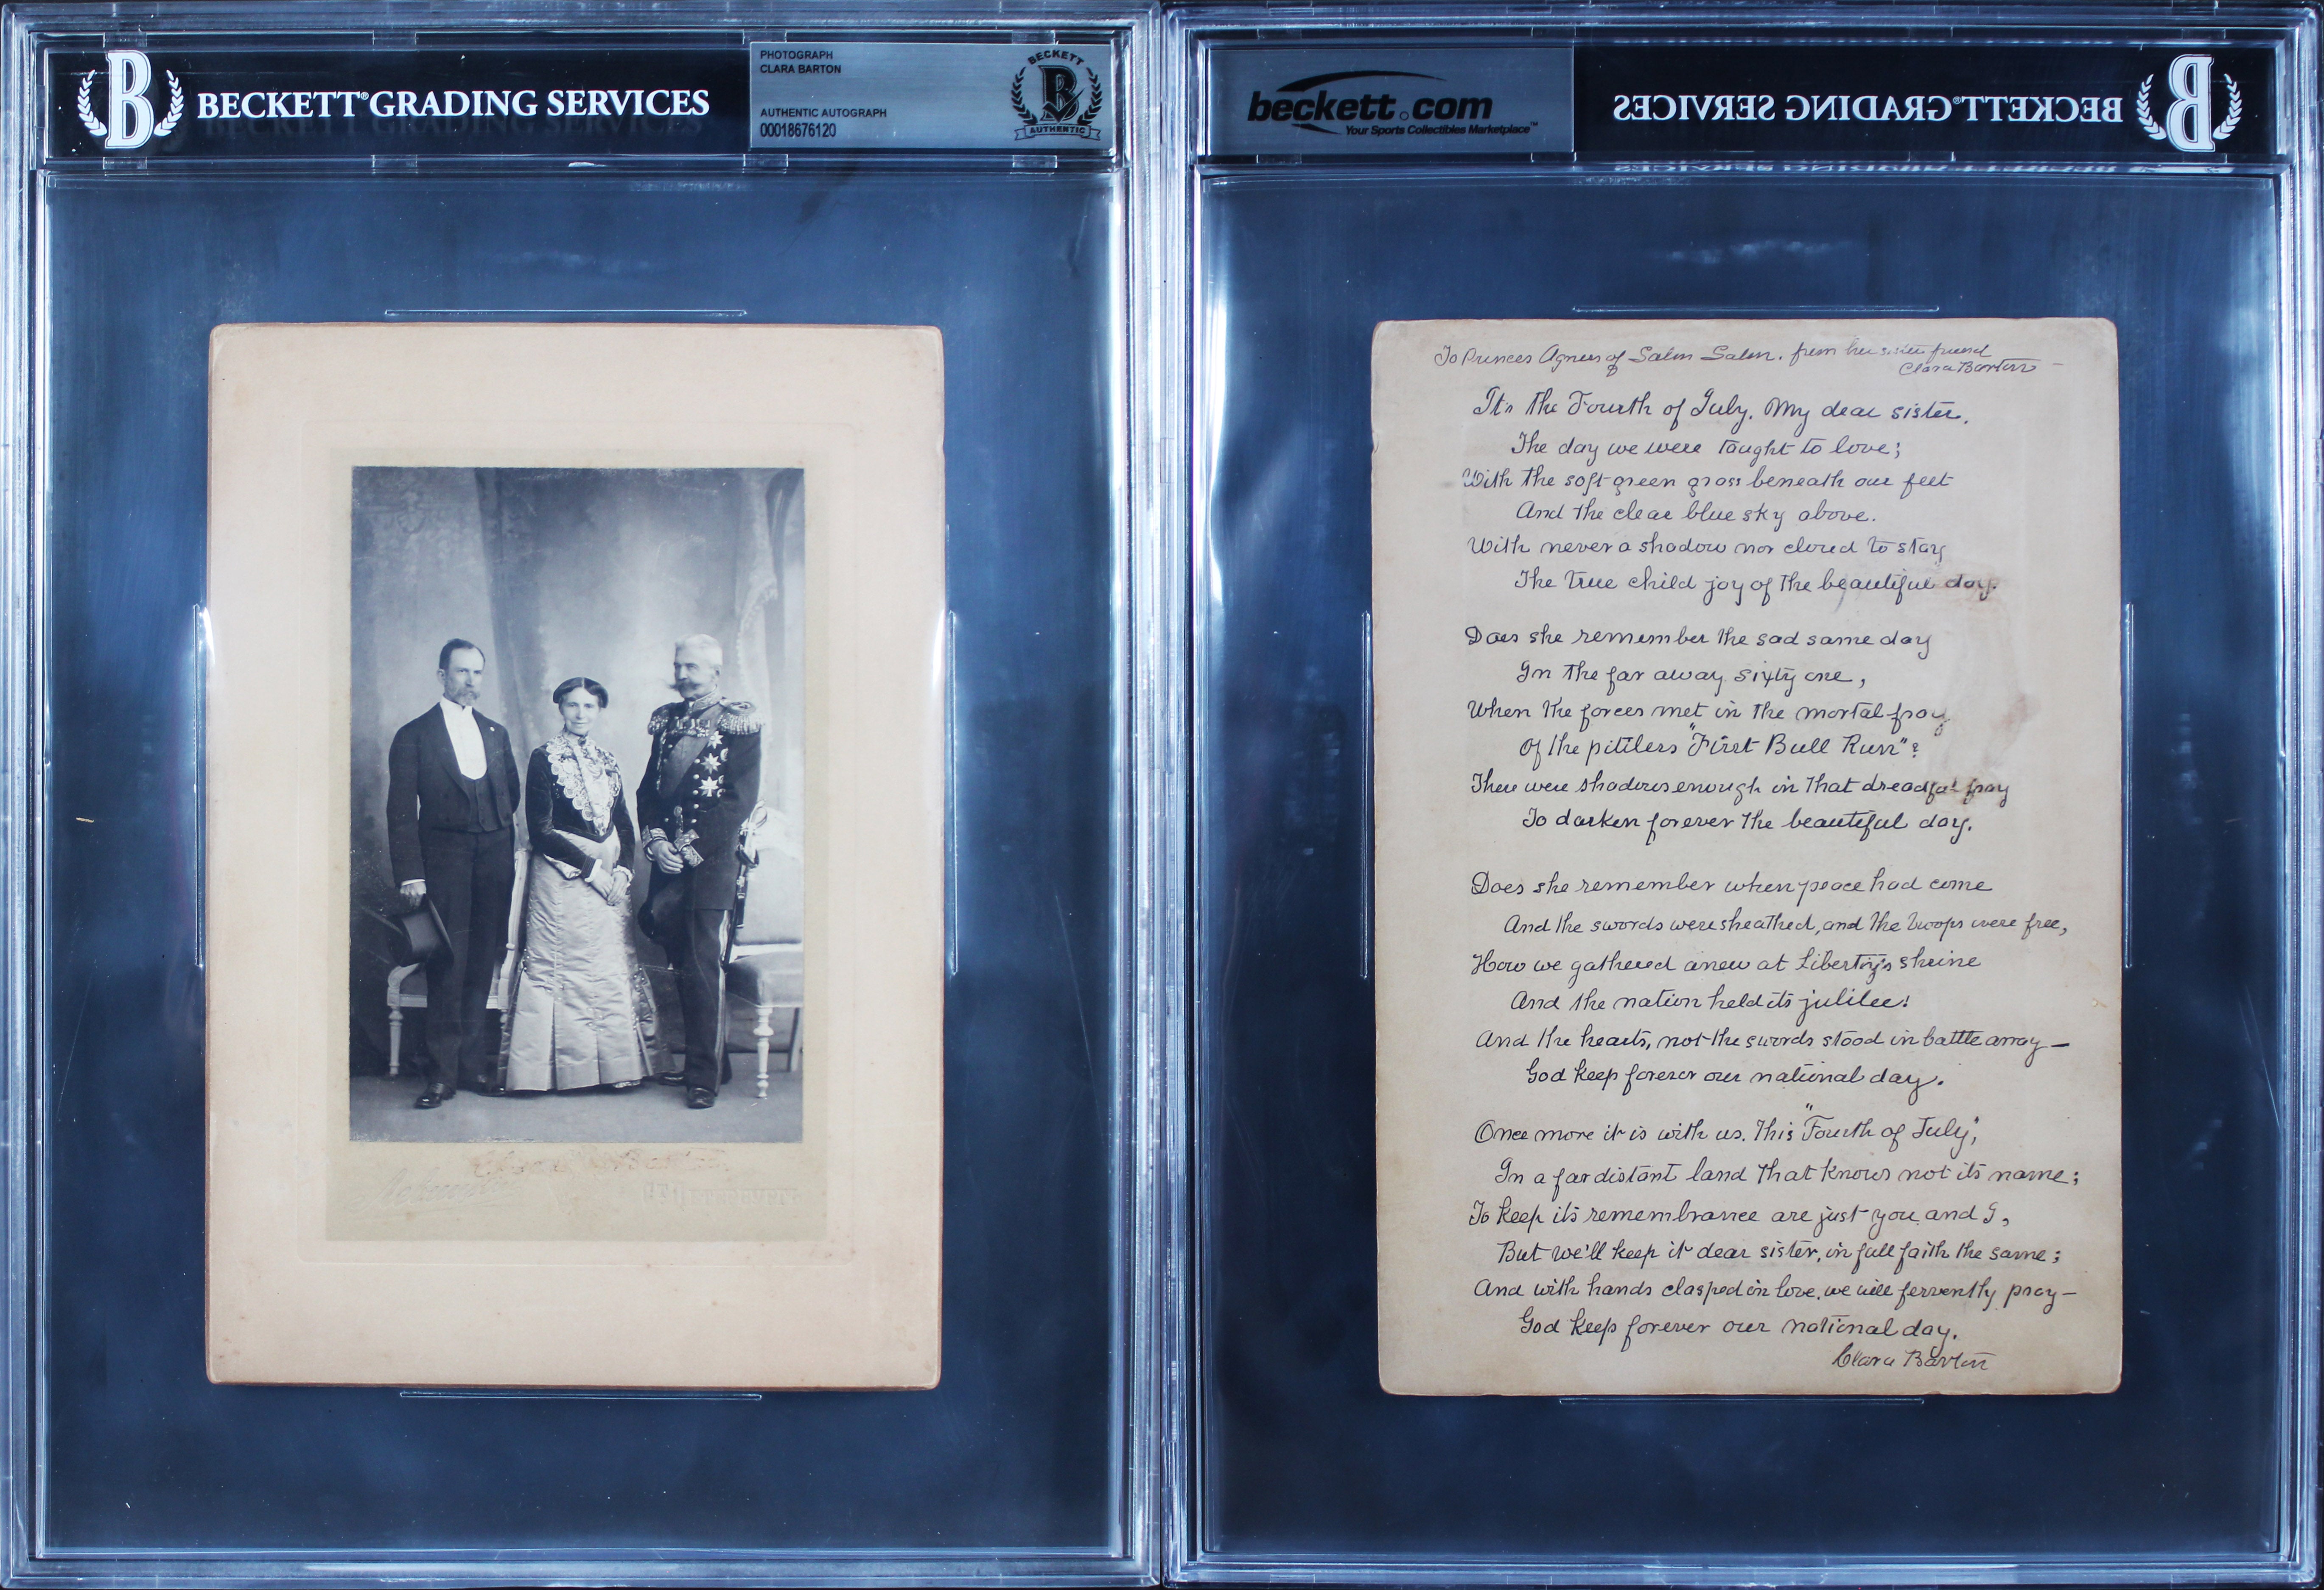 BECKETT® GRADING SERVICES
PHOTOGRAPH
CLARA BARTON
AUTHENTIC AUTOGRAPH
00018676120
BECKETT
AUTHENTIC
beckett.com
Your Sports Collectibles Marketplace™
BECKETT® GRADING SERVICES
To Princes Agnes of Salm Salm. from her sister friend
Clara Barton
It's the Fourth of July. My dear sister,
The day we were taught to love;
With the soft green grass beneath our feet
And the clear blue sky above.
With never a shadow nor cloud to stay
The true child joy of the beautiful day.
Does she remember the sad same day
In the far away sixty one,
When the forces met in the mortal fray
Of the pitiless "First Bull Run"?
There were shadows enough in that dreadful fray
To darken forever the beautiful day.
Does she remember when peace had come
And the swords were sheathed, and the troops were free,
How we gathered anew at Liberty's shrine
And the nation held its jubilee!
And the hearts, not the swords stood in battle array—
God keep forever our national day.
Once more it is with us. This "Fourth of July",
In a far distant land that knows not its name;
To keep its remembrance are just you and I,
But we'll keep it dear sister, in full faith the same;
And with hands clasped in love, we will fervently pray—
God keep forever our national day.
Clara Barton